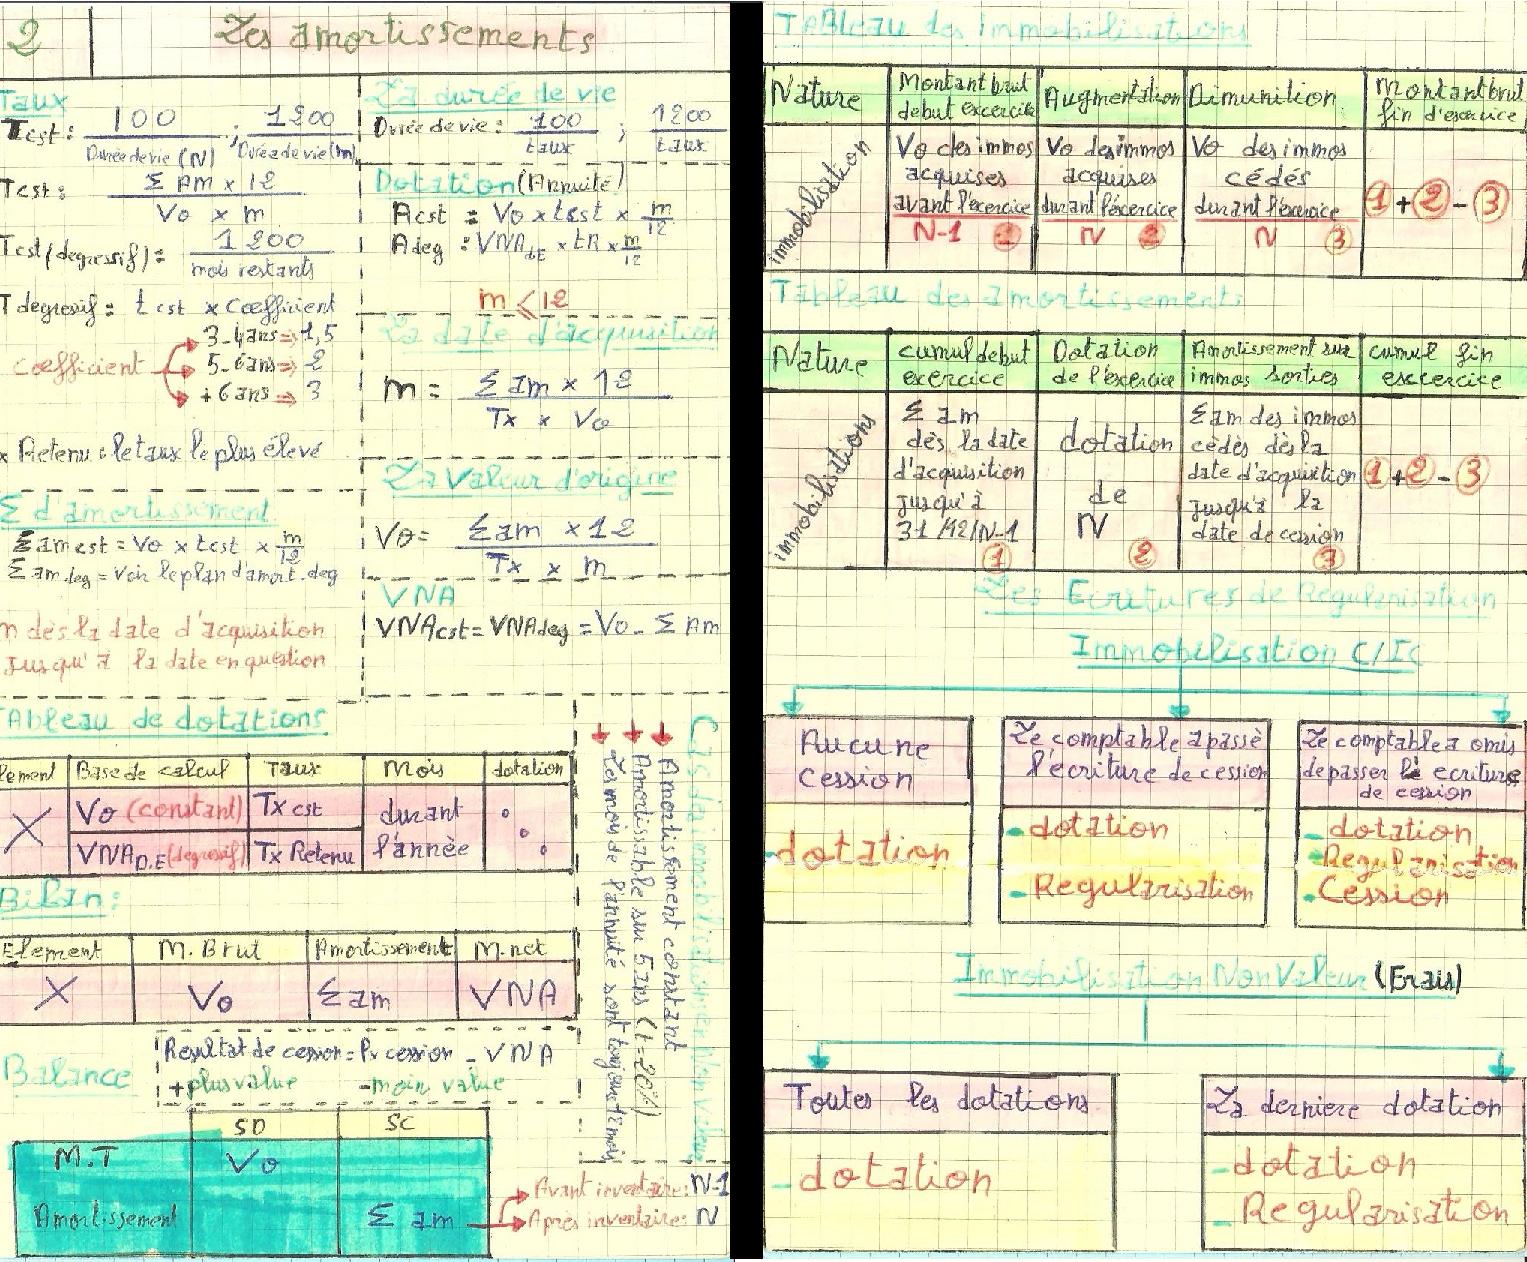 2
Les amortissements
Taux
Tcst: 100 / Durée de vie (N) ; 1200 / Durée de vie (m)
Tcst: Σ Am x 12 / Vo x m
Tcst(degressif)= 1200 / mois restants
T degressif= tcst x coefficient
coefficient
3-4ans => 1,5
5-6ans => 2
+6ans => 3
x Retenu: le taux le plus élevé
Σ d'amortissement
Σ am cst = Vo x tcst x m/12
Σ am.deg = Voir le plan d'amort.deg
m dès la date d'acquisition
jusqu'à la date en question
La durée de vie
Durée de vie: 100 / taux ; 1200 / taux
Dotation (Annuité)
Acst = Vo x tcst x m/12
Adeg: VNA DE x tR x m/12
m ≤ 12
La date d'acquisition
m = Σ am x 12 / Tx x Vo
La Valeur d'origine
Vo= Σ am x 12 / Tx x m
VNA
VNAcst = VNAdeg = Vo - Σ Am
Tableau de dotations
element Base de calcul Taux Mois dotation
X Vo (constant) Tx cst durant
VNA D.E (degressif) Tx Retenu l'année
Bilan:
Element M.Brut Amortissement M.net
X Vo Σ am VNA
Resultat de cession = Pv cession - VNA
+ plus value - moin value
Balance
SD SC
M.T Vo
Amortissement Σ am
Avant inventaire: N-1
Après inventaire: N
Cas des immobilisation Non Valeur
Amortissement constant
Amortissable sur 5 ans (t=20%)
Les mois de l'annuité sont toujours 12 mois
TABleau des immobilisations
Nature Montant brut debut excercice Augmentation Dimunition Montant brut fin d'exercice
immobilisation
Vo des immos acquises avant l'exercice N-1 ①
Vo des immos acquises durant l'éxercice N ②
Vo des immos cédés durant l'éxercice N ③
①+②-③
Tableau des amortissements
Nature cumul debut exercice Dotation de l'éxercice Amortissement sur immos sorties cumul fin excercice
immobilisations
Σ am dès la date d'acquisition jusqu'à 31/12/N-1 ①
dotation de N ②
Σ am des immos cèdès dès la date d'acquisition jusqu'à la date de cession ③
①+②-③
Les Ecritures de Regularisation
Immobilisation C/IC
Aucune cession
- dotation
Le comptable a passè l'ècriture de cession
- dotation
- Regularisation
Le comptable a omis de passer le ecriture de cession
- dotation
- Regularisation
- Cession
Immobilisation Non Valeur (Frais)
Toutes les dotations
- dotation
La derniere dotation
- dotation
- Regularisation